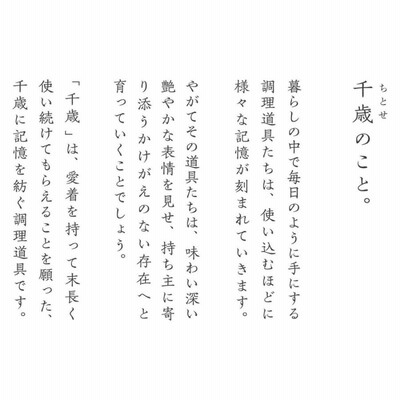 ちとせ
千歳のこと。
暮らしの中で毎日のように手にする
調理道具たちは、使い込むほどに
様々な記憶が刻まれていきます。
やがてその道具たちは、味わい深い
艶やかな表情を見せ、持ち主に寄
り添うかけがえのない存在へと
育っていくことでしょう。
「千歳」は、愛着を持って末長く
使い続けてもらえることを願った、
千歳に記憶を紡ぐ調理道具です。